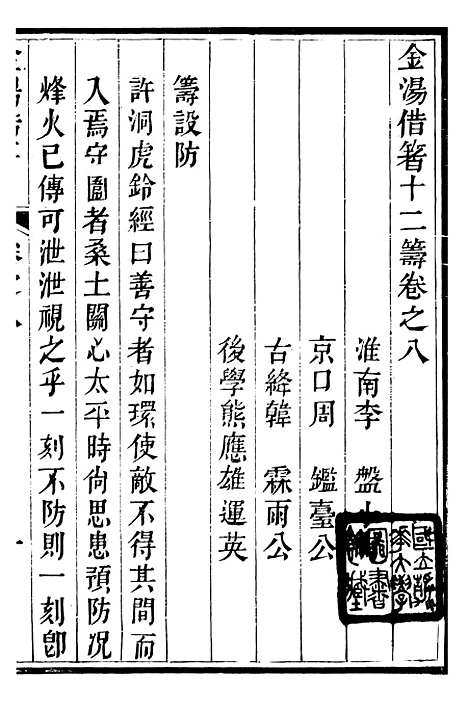 金湯借箸十二籌卷之八
淮南李 盤
京口周 鑑臺公
古絳韓 霖雨公
後學熊應雄運英
籌設防
許洞虎鈐經曰善守者如環使敵不得其間而
入焉守圉者桑土關心太平時尙思患預防况
烽火已傳可泄泄視之乎一刻不防則一刻卽